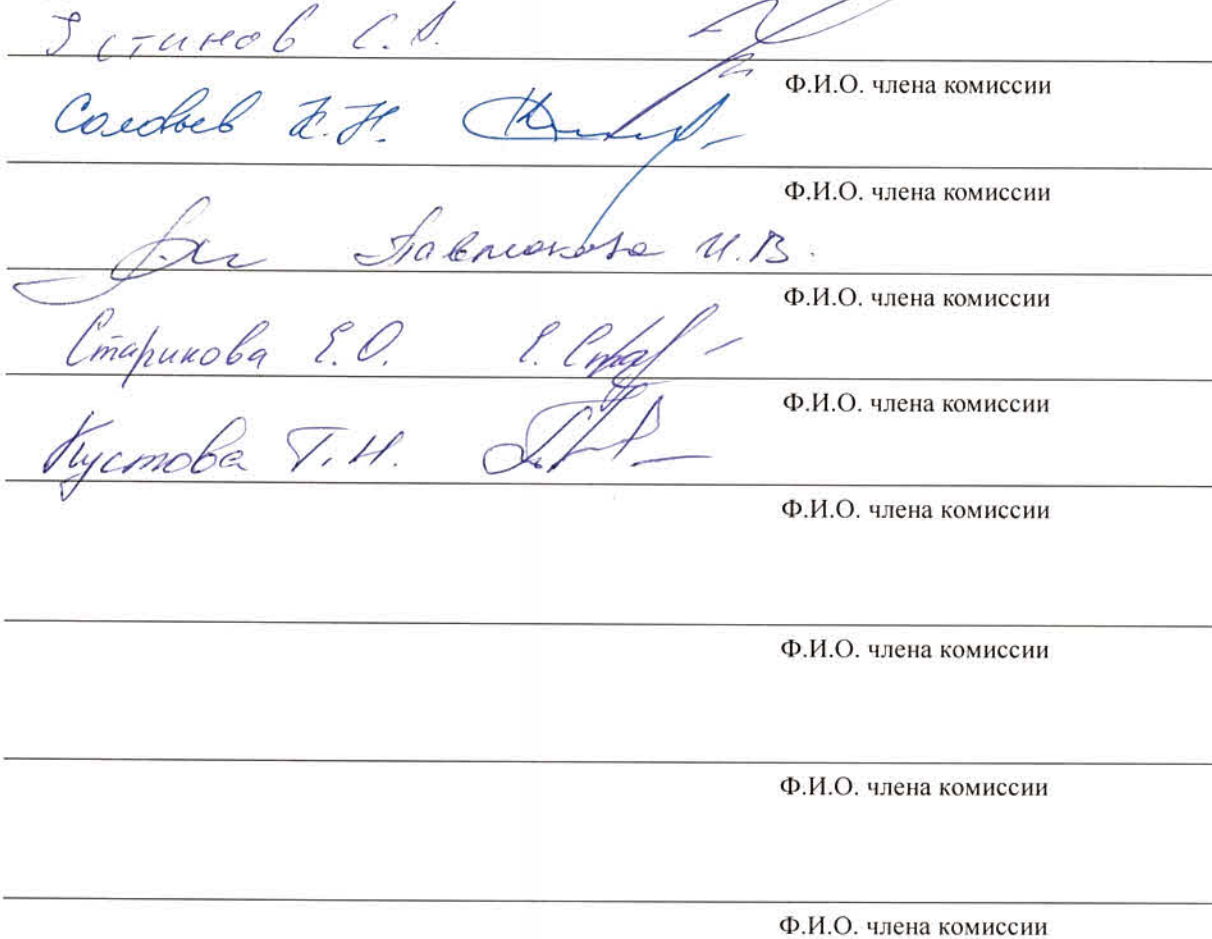 Устинов С.А.
Ф.И.О. члена комиссии
Соловьев К.Н.
Ф.И.О. члена комиссии
И.В.
Ф.И.О. члена комиссии
Старикова Е.О.
Ф.И.О. члена комиссии
Кустова Т.Н.
Ф.И.О. члена комиссии
Ф.И.О. члена комиссии
Ф.И.О. члена комиссии
Ф.И.О. члена комиссии